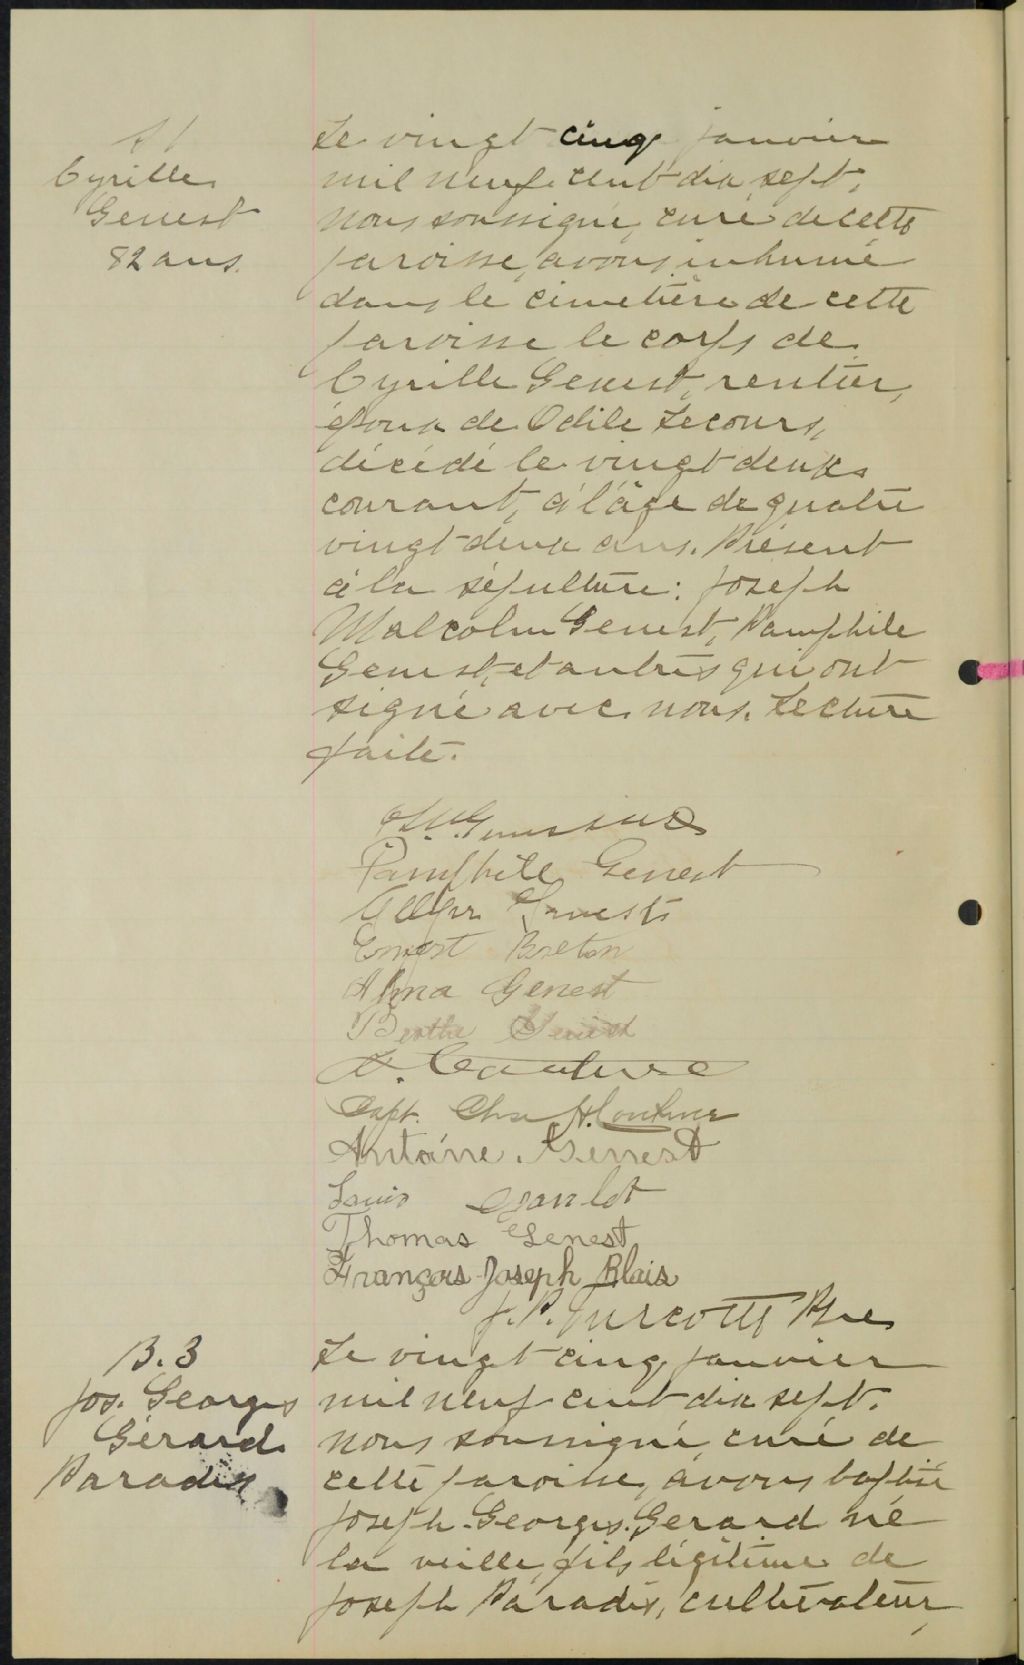 S 1
Cyrille
Genest
82 ans.
Le vingt cinq janvier
mil neuf cent dix sept,
nous soussigné, curé de cette
paroisse, avons inhumé
dans le cimetière de cette
paroisse le corps de
Cyrille Genest, rentier,
époux de Odile Lecours,
décédé le vingt deux
courant, à l'âge de quatre
vingt-deux ans. Présent
à la sépulture: Joseph
Malcolm Genest, Pamphile
Genest, et autres qui ont
signé avec nous. Lecture
faite.
Pamphile Genest
Genest
Ernest Breton
Alma Genest
Berthe Genest
Couture
Capt. Chs. H. Couture
Antoine Genest
Louis
Thomas Genest
François-Joseph Blais
J. P. Turcotte Ptre
B. 3
Jos. Georges
Gérard
Paradis
Le vingt cinq janvier
mil neuf cent dix sept,
nous soussigné curé de
cette paroisse, avons baptisé
Joseph-Georges-Gérard né
la veille, fils légitime de
Joseph Paradis, cultivateur,